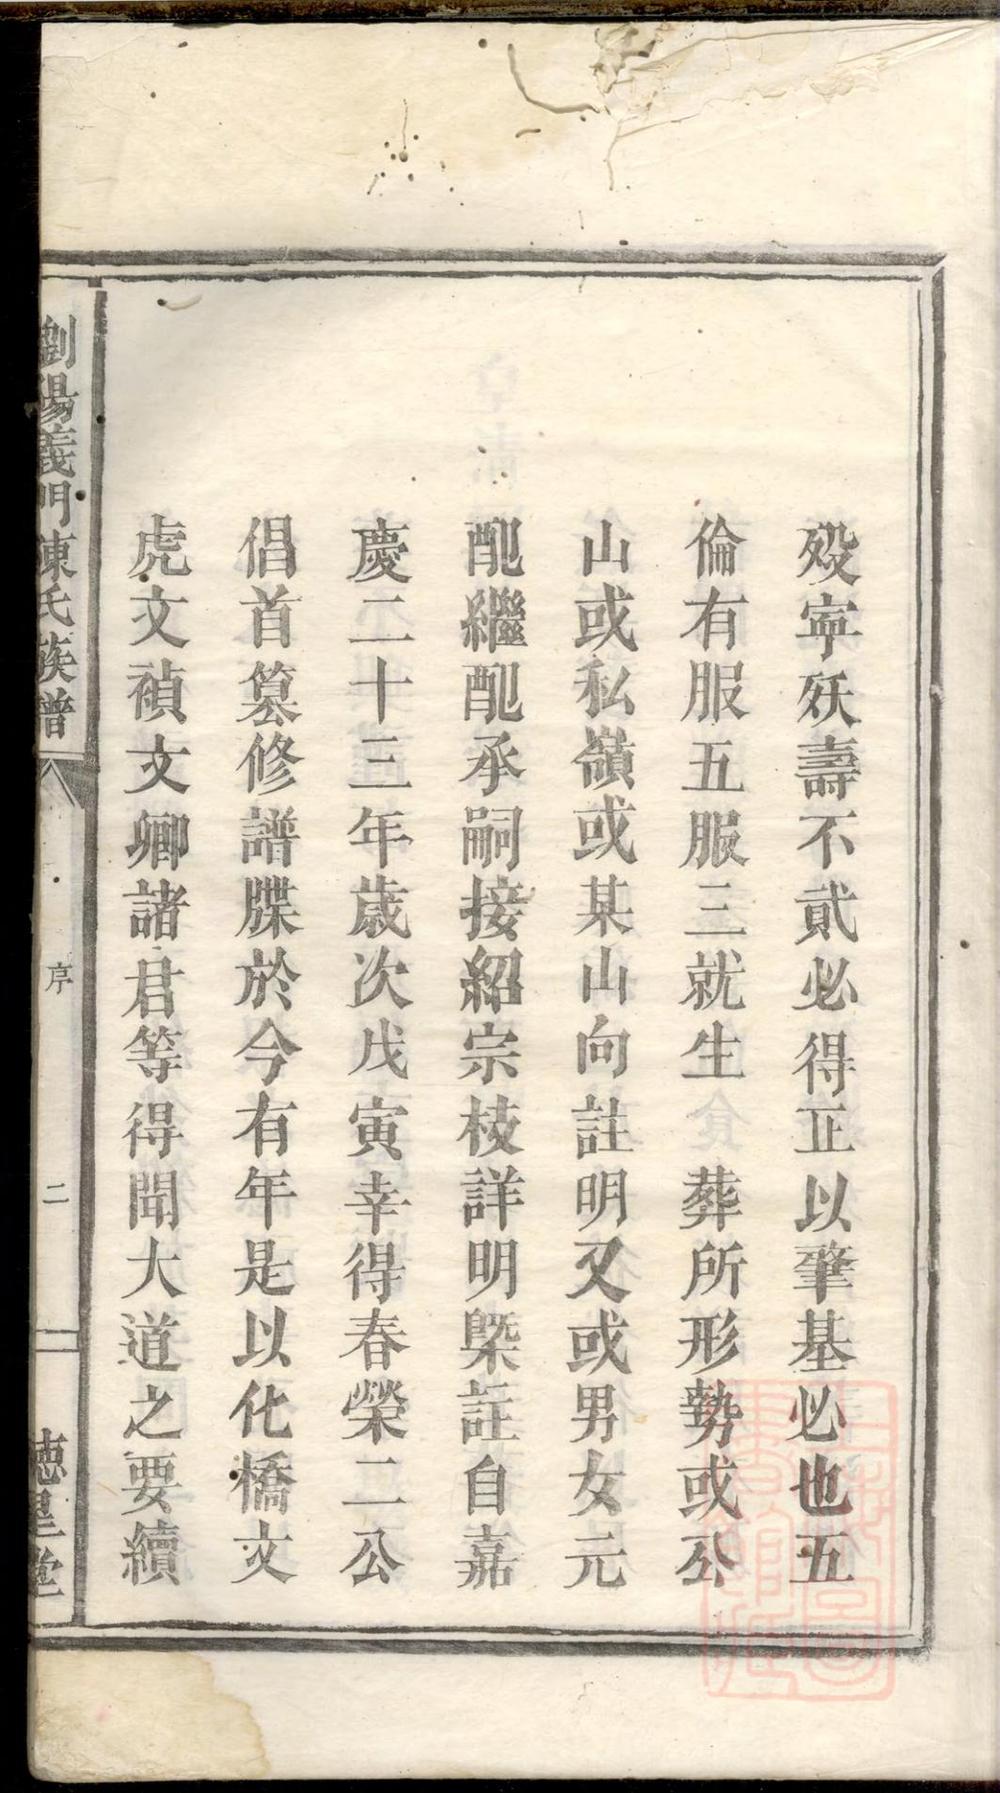 殁寕殀壽不貳必得正以肇基必也五
倫有服五服三就生 葬所形勢或公
山或私嶺或某山向註明又或男女元
配繼配承嗣接紹宗枝詳明槩註自嘉
慶二十三年歳次戊寅幸得春榮二公
倡首篡修譜牒於今有年是以化橋文
虎文禎文卿諸君等得聞大道之要續
劉陽義門陳氏族譜
序
二
德星堂